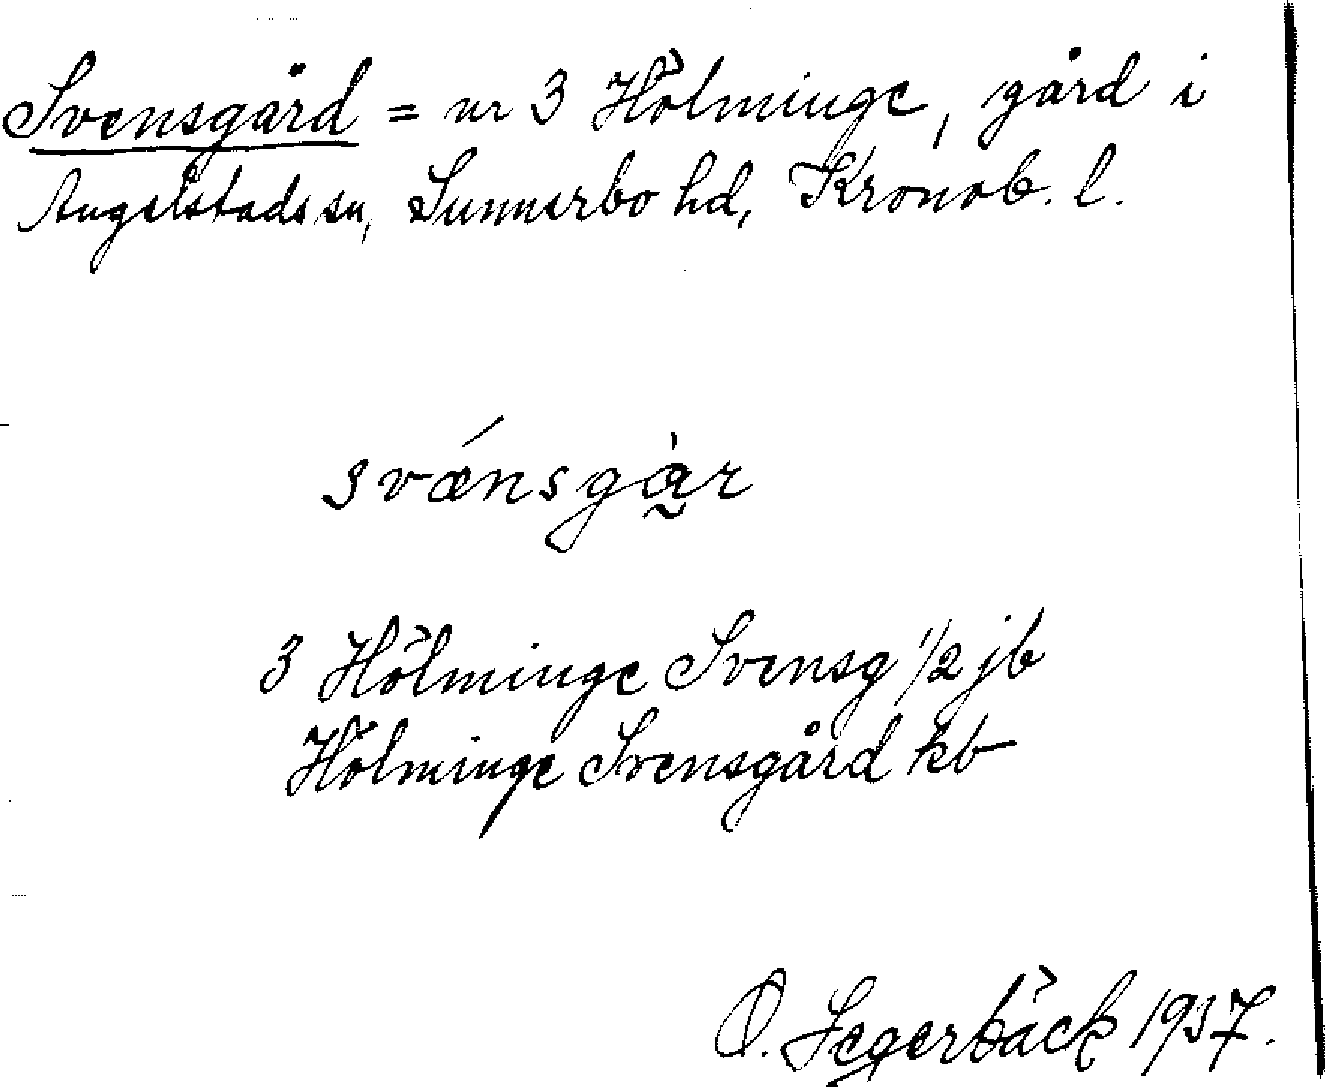 Svensgård = nr 3 Hölminge, gård i
Angelstads sn, Sunnerbo hd, Kronob. l.
svǽnsgàr
3 Hölminge Svensg 1/2 jb
Hölminge Svensgård kb
O. Segerbäck 1937.